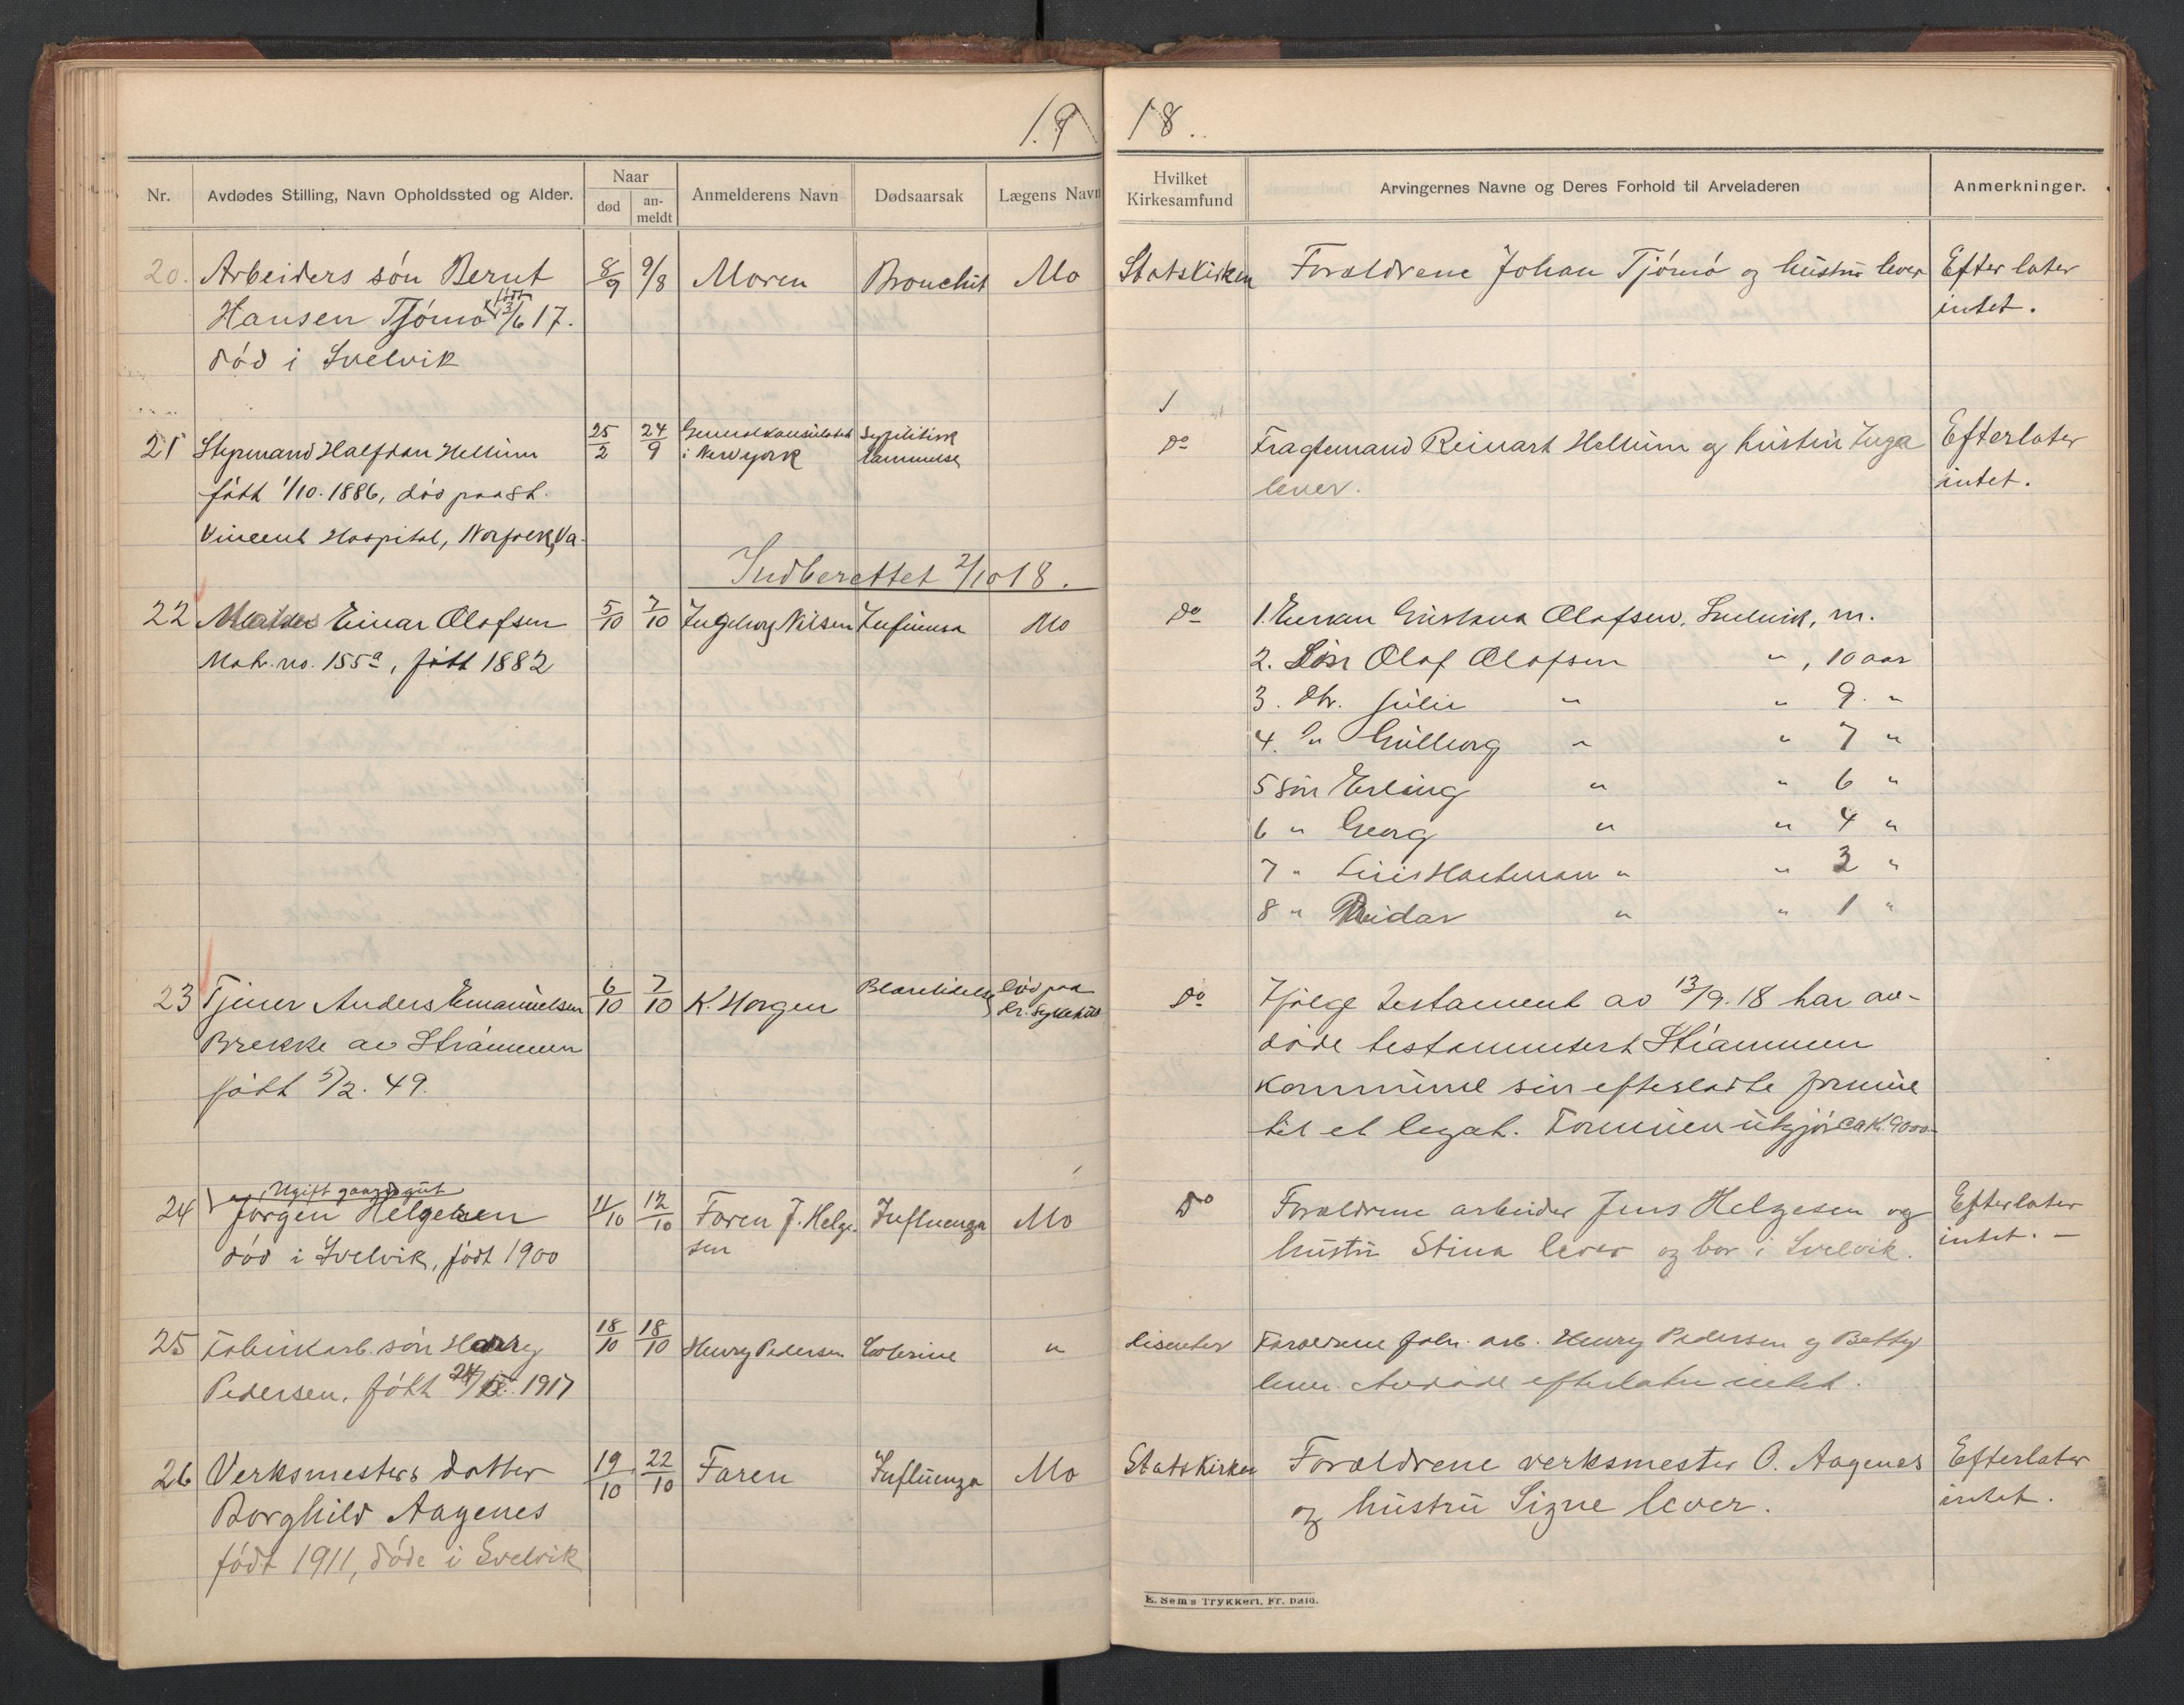 19 18.
Nr. Avdødes Stilling, Navn Opholdssted og Alder. Naar død an-meldt Anmelderens Navn Dødsaarsak Lægens Navn Hvilket Kirkesamfund Arvingernes Navne og Deres Forhold til Arveladeren Anmerkninger.
20. Arbeiders søn Bernt 8/9 9/8 Moren Bronchit Mo Statskirken Forældrene Johan Tjømø og hustru lever Efterlater
Hansen Tjømø født 13/6 17. intet.
død i Svelvik
21 Styrmand Halfdan Hellum 25/2 24/9 Generalkonsulatet Sypilitisk Do Fragtemand Reinart Hellum og hustru Inga Efterlater
i New york lammelse
født 1/10. 1886, død paa St. lever. intet.
Vincent Hospital, Norfolk, Va.
Indberettet 2/10 18.
22 Einar Olafsen 5/10 7/10 Ingeborg Nilsen Influensa Mo Do 1. Enken Gustava Olafsen, Svelvik, m.
Matr. no. 155a, født 1882 2. Søn Olaf Olafsen " , 10 aar
3. Dtr. Julie " " 9. "
4. " Gullborg " " 7 "
5 søn Erling " " 6 "
6 " Georg " " 4 "
7 " Hartman " " 3 "
8 " Reidar " " 1 "
23 Tjener Anders Emanuelsen 6/10 7/10 K. Horgen Blærelidelse død paa Dr. Sykehus Do Ifølge testament av 13/9. 18 har av-
Brekke av Strømmen døde testamentert Strømmen
født 5/2. 49. kommune sin efterladte formue
til et legat. Formuen utgjør ca K. 9000-
24 Ugift gaardsgut
Jørgen Helgesen 11/10 12/10 Faren J. Helge- Influenza Mo Do Forældrene arbeider Jens Helgesen og Efterlater
sen
død i Svelvik, født 1900 hustru Stina lever og bor i Svelvik. intet. —
25 Fabrikarb. søn Harry 18/10 18/10 Henry Pedersen " disenter Forældrene fabr. arb. Henry Pedersen og Betty
Pedersen, født 1917 lever. Avdøde efterlater intet.
26 Verksmesters datter 19/10 22/10 Faren Influenza Mo Statskirken Forældrene verksmester O. Aagenes Efterlater
Borghild Aagenes og hustru Signe lever. intet.
født 1911, døde i Svelvik
E. Sems Trykkeri, Fr. hald.